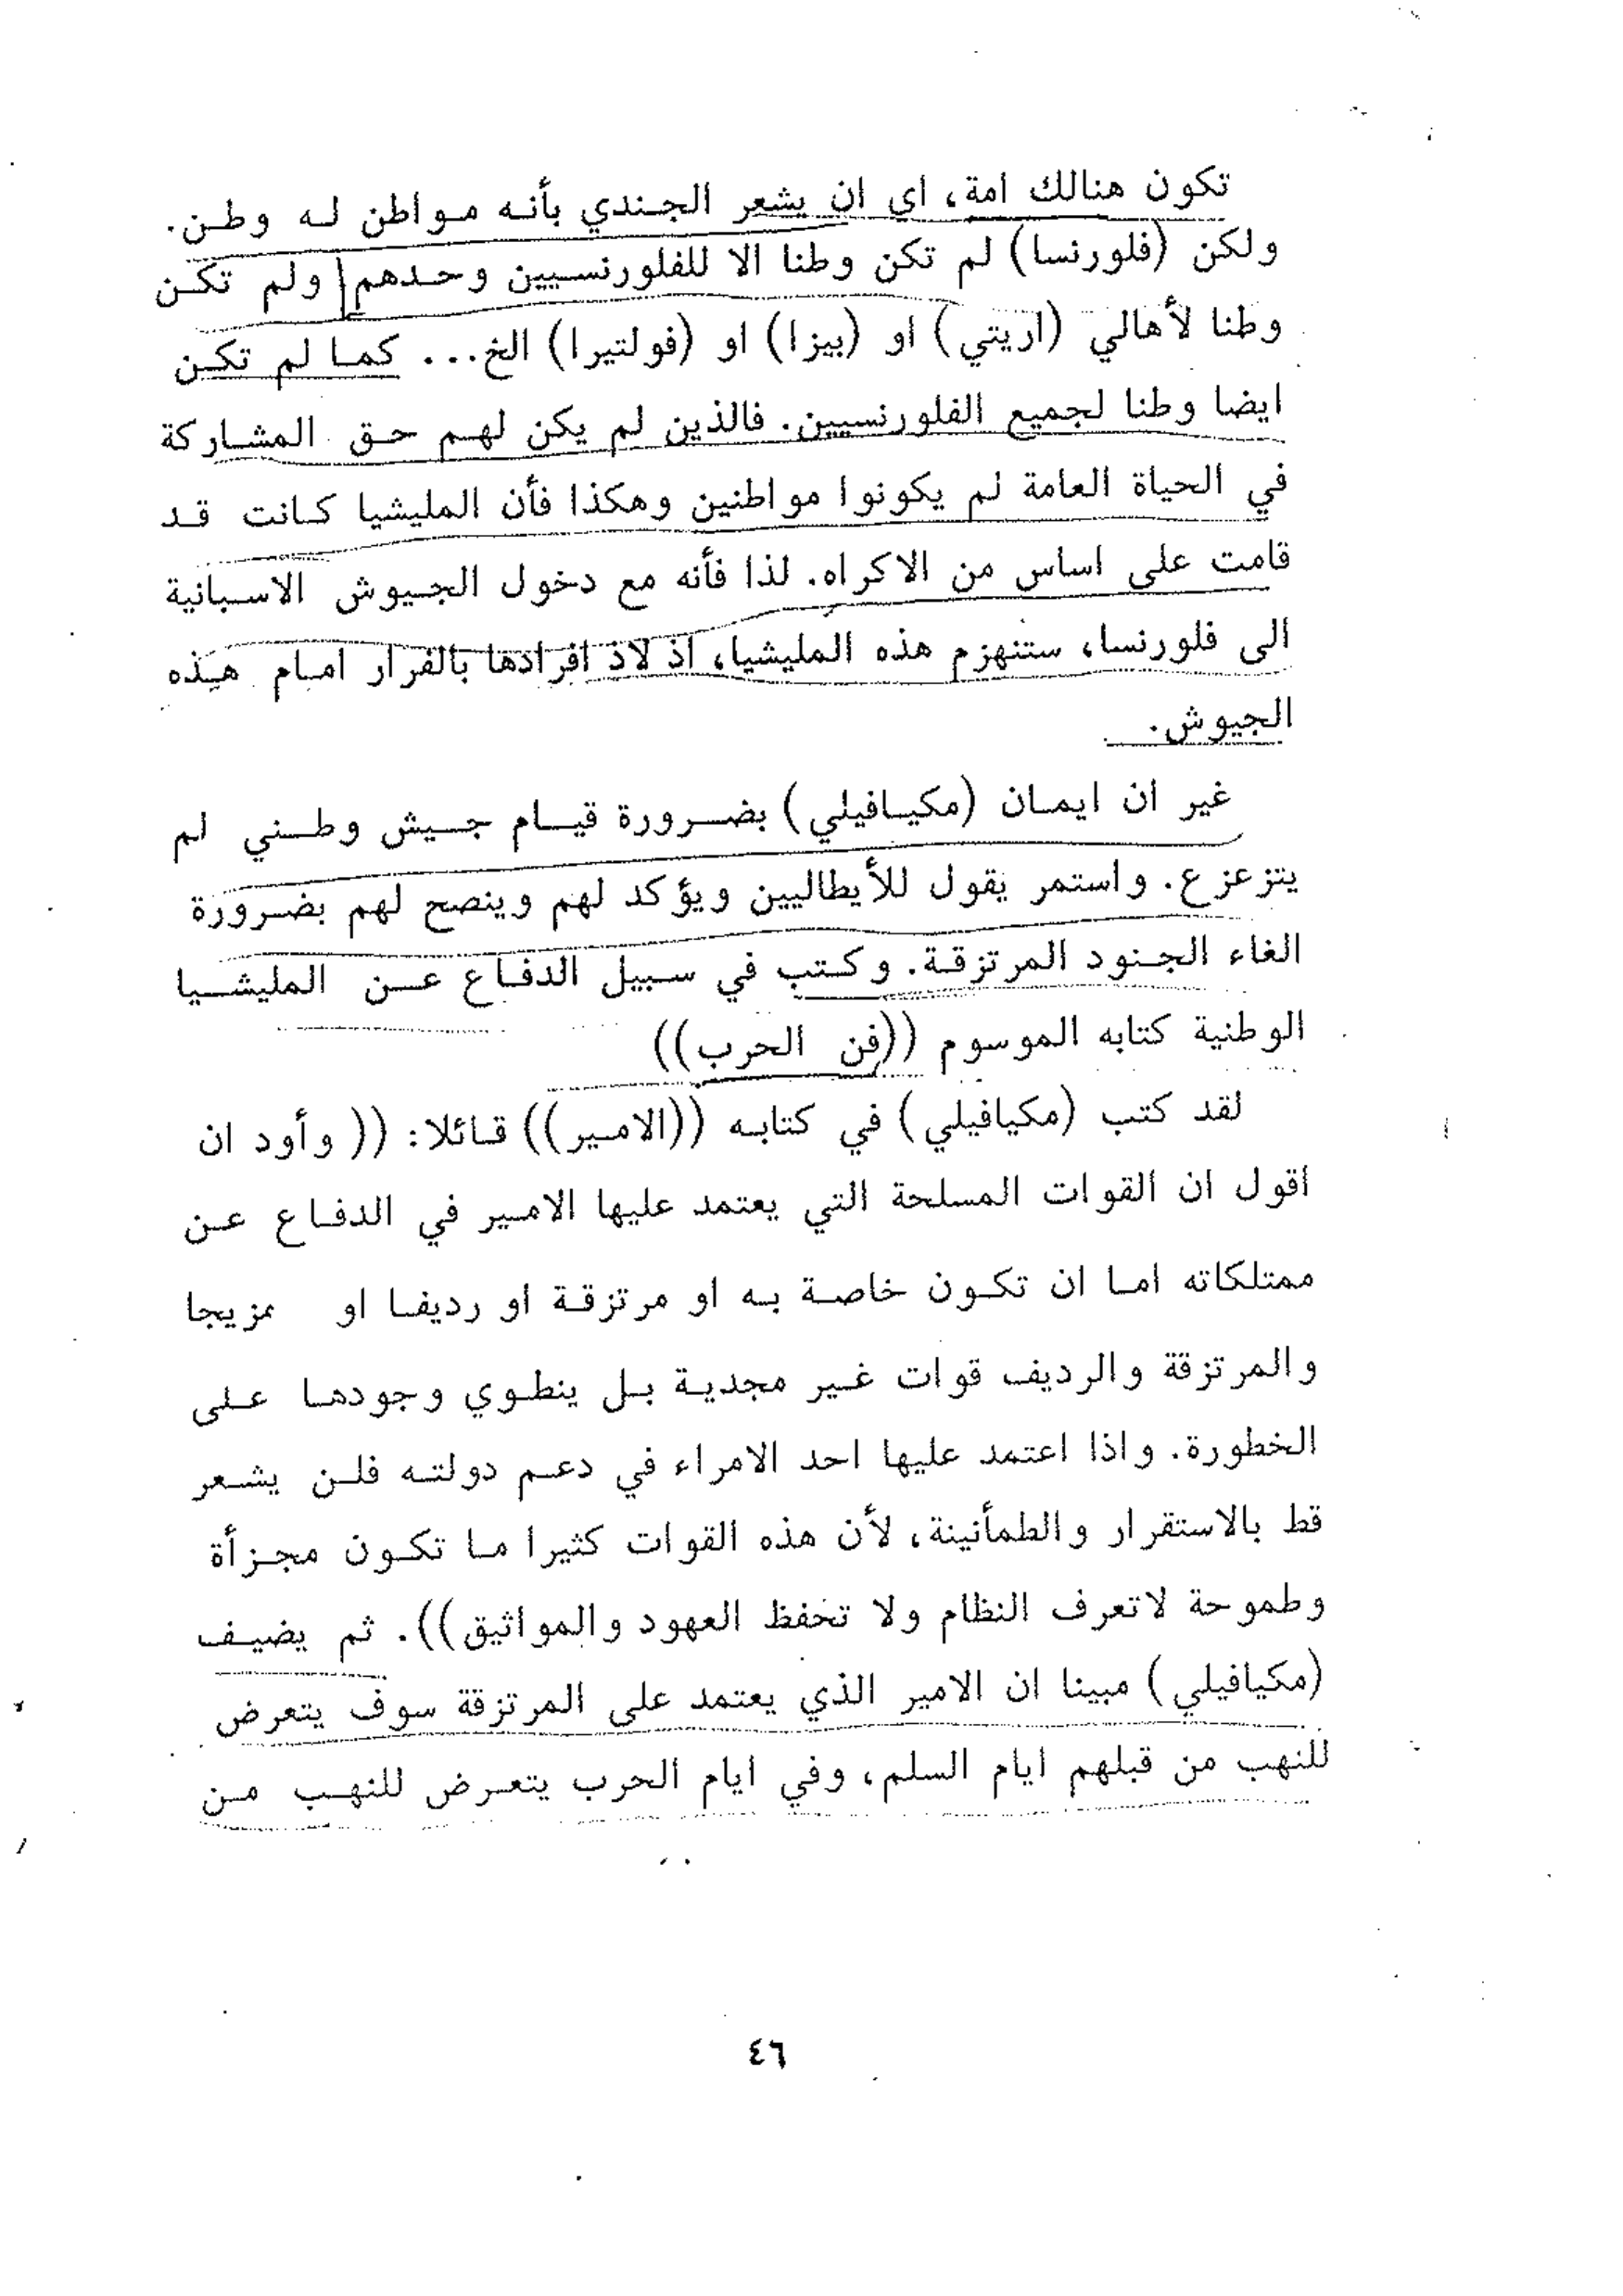 تكون هنالك امة، اي ان يشعر الجندي بأنه مواطن له وطن.
ولكن (فلورنسا) لم تكن وطنا الا للفلورنسيين وحدهم ولم تكن
وطنا لأهالي (اريتي) او (بيزا) او (فولتيرا) الخ... كما لم تكن
ايضا وطنا لجميع الفلورنسيين. فالذين لم يكن لهم حق المشاركة
في الحياة العامة لم يكونوا مواطنين وهكذا فأن المليشيا كانت قد
قامت على اساس من الاكراه. لذا فأنه مع دخول الجيوش الاسبانية
الى فلورنسا، ستنهزم هذه المليشيا، اذ لاذ افرادها بالفرار امام هذه
الجيوش.
غير ان ايمان (مكيافيلي) بضرورة قيام جيش وطني لم
يتزعزع. واستمر يقول للأيطاليين ويؤكد لهم وينصح لهم بضرورة
الغاء الجنود المرتزقة. وكتب في سبيل الدفاع عن المليشيا
الوطنية كتابه الموسوم ((فن الحرب))
لقد كتب (مكيافيلي) في كتابه ((الامير)) قائلا: (( وأود ان
اقول ان القوات المسلحة التي يعتمد عليها الامير في الدفاع عن
ممتلكاته اما ان تكون خاصة به او مرتزقة او رديفا او مزيجا
والمرتزقة والرديف قوات غير مجدية بل ينطوي وجودها على
الخطورة. واذا اعتمد عليها احد الامراء في دعم دولته فلن يشعر
قط بالاستقرار والطمأنينة، لأن هذه القوات كثيرا ما تكون مجزأة
وطموحة لاتعرف النظام ولا تحفظ العهود والمواثيق)). ثم يضيف
(مكيافيلي) مبينا ان الامير الذي يعتمد على المرتزقة سوف يتعرض
للنهب من قبلهم ايام السلم، وفي ايام الحرب يتعرض للنهب من
٤٦